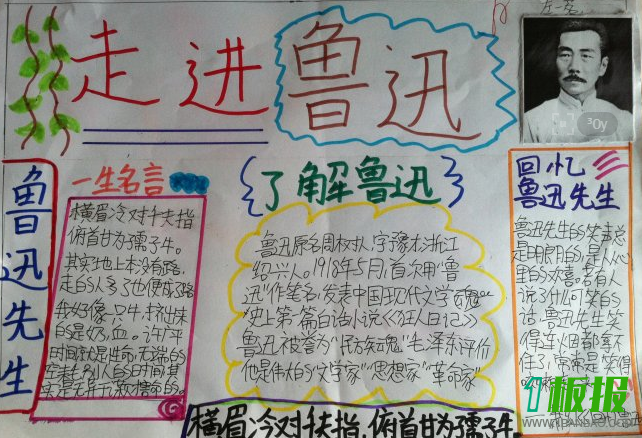 走进鲁迅
鲁迅先生
一生名言
横眉冷对千夫指
俯首甘为孺子牛。
其实地上本没有路,
走的人多了也便成了路
我好像一只牛,挤出来
的是奶,血。许广平
时间就是生命,无端的
空耗别人的时间,其
实是无异于谋财害命的。
了解鲁迅
鲁迅原名周树人,字豫才,浙江
绍兴人。1918年5月,首次用“鲁
迅”作笔名,发表中国现代文学
史上第一篇白话小说《狂人日记》
鲁迅被誉为“民族魂”毛泽东评价
他是伟大的“文学家”“思想家”“革命家”
回忆
鲁迅先生
鲁迅先生的笑声总
是明朗的,是从心
里的欢喜。若有人
说了什么可笑的
话,鲁迅先生笑
得连烟都拿不
住了,常常是笑得
横眉冷对千夫指,俯首甘为孺子牛
板报